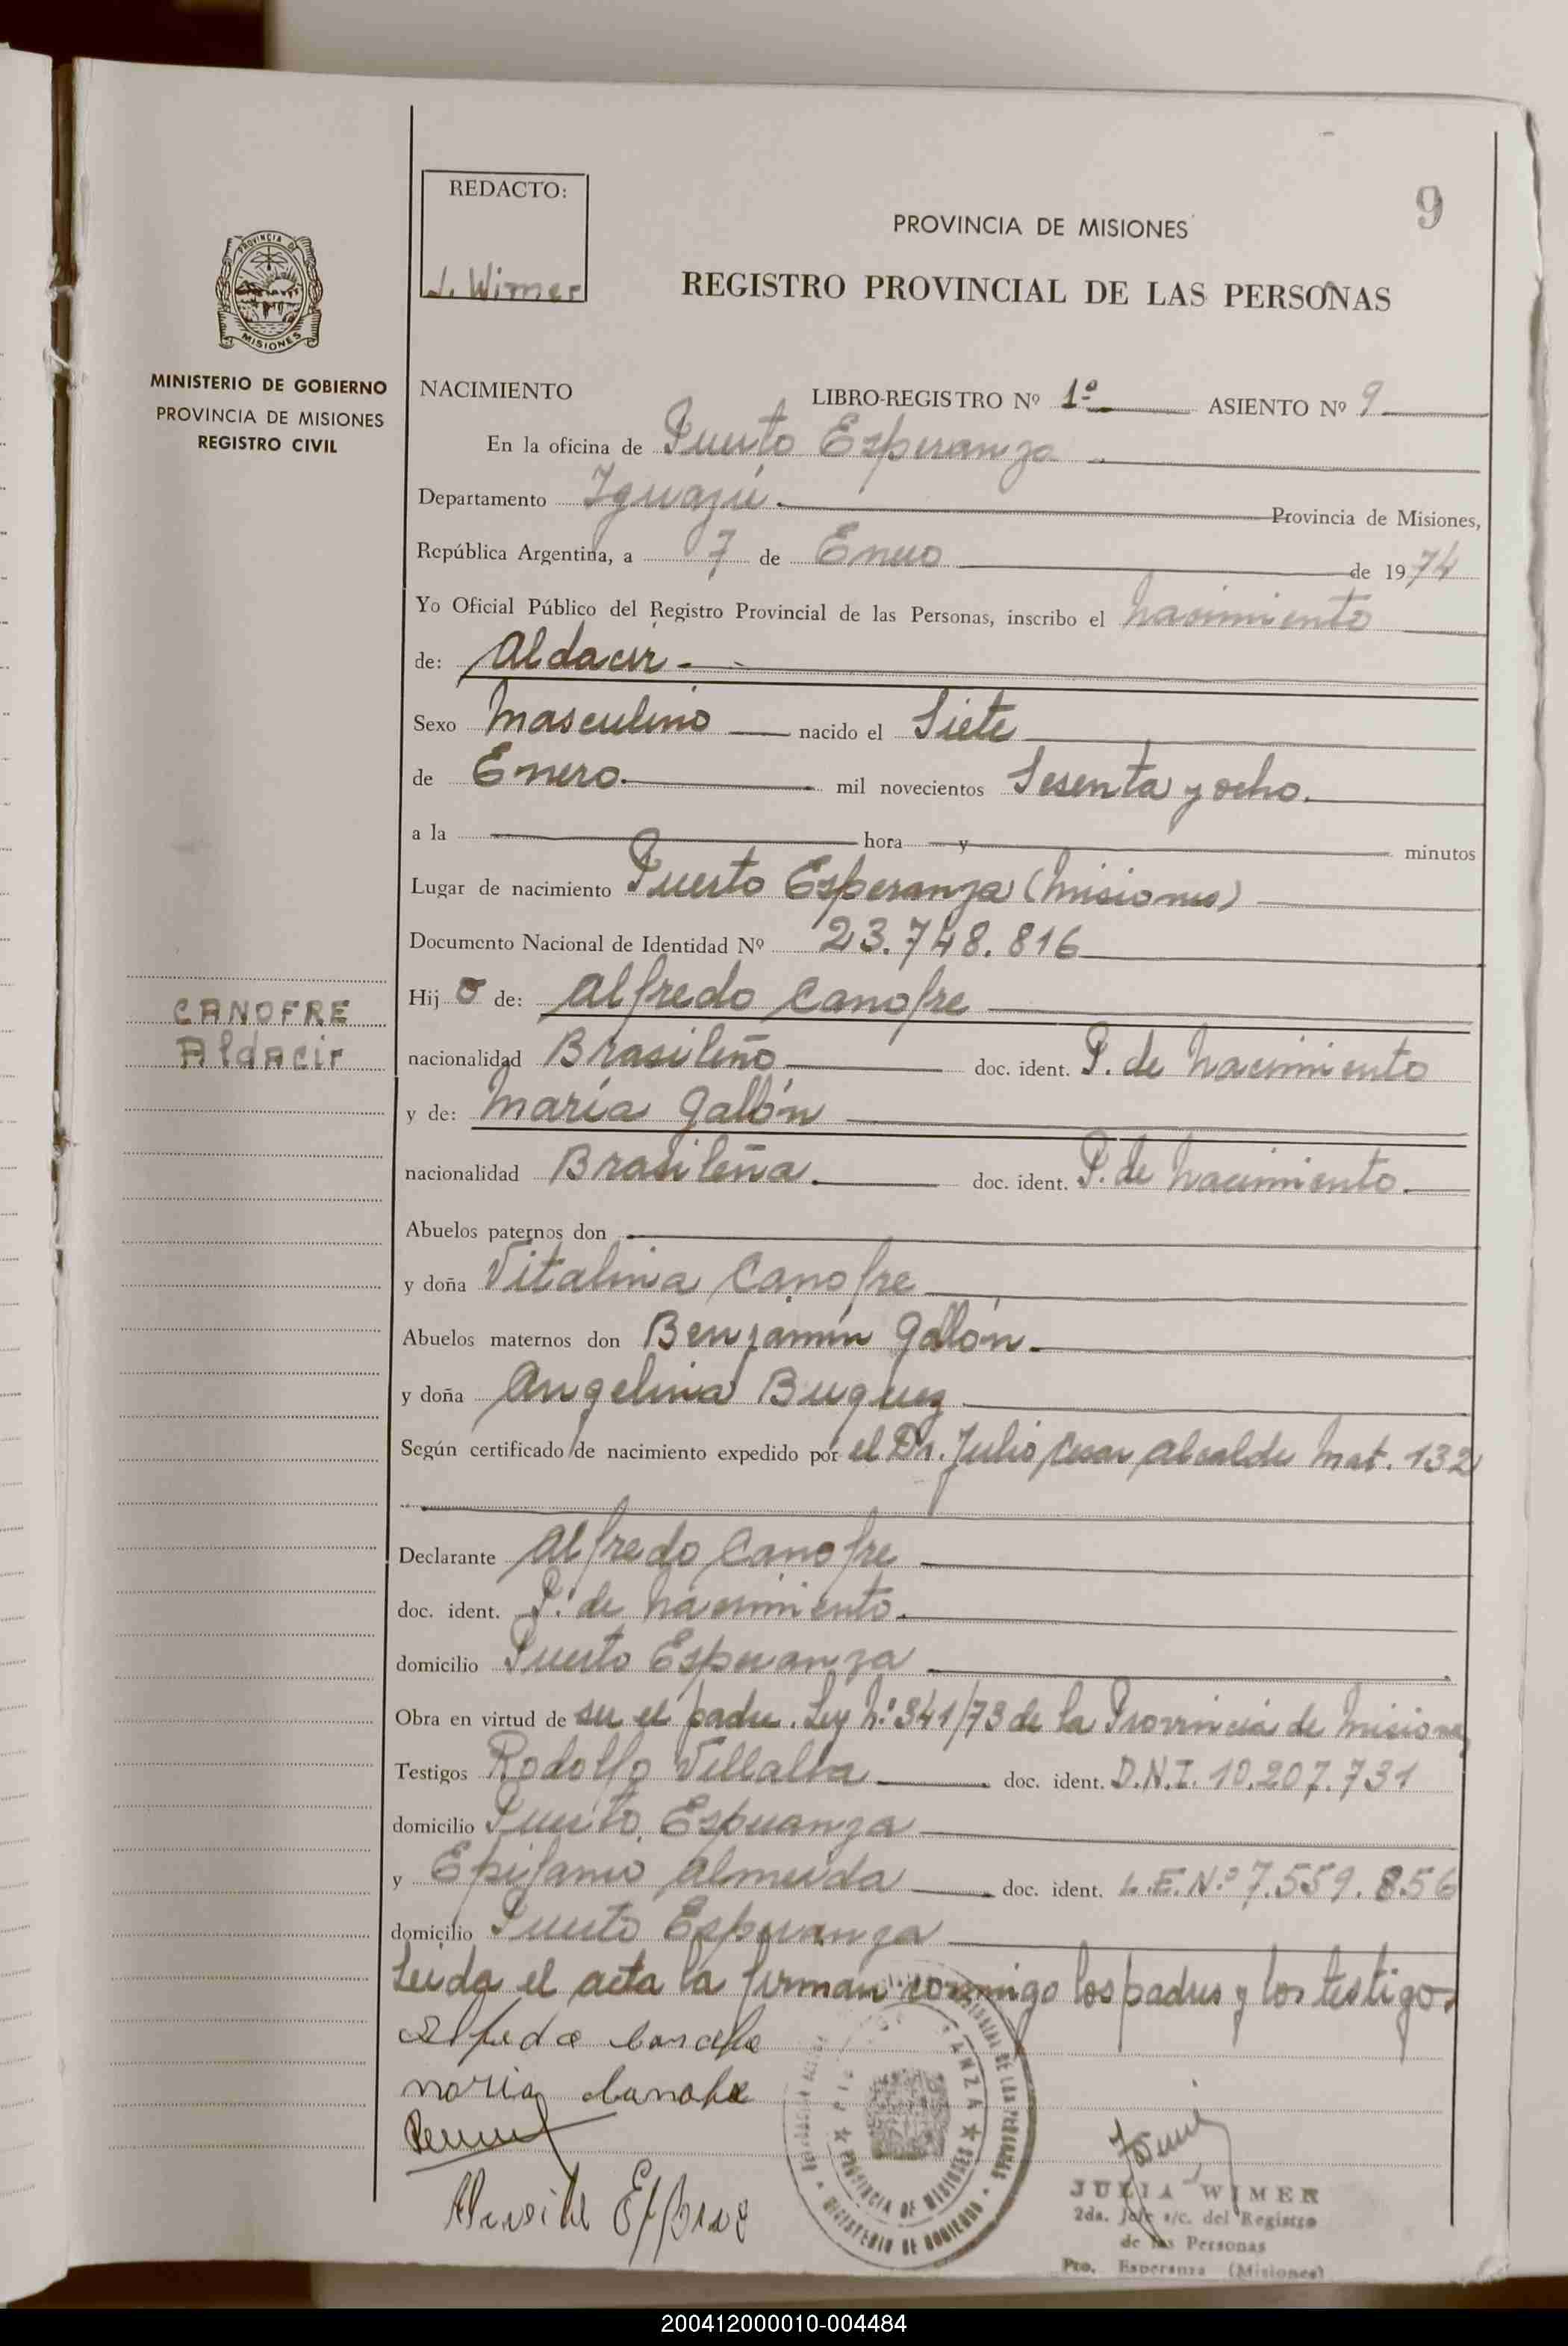 9
REDACTO:
J. Wimer
PROVINCIA DE MISIONES
REGISTRO PROVINCIAL DE LAS PERSONAS
PROVINCIA D
MISIONES
MINISTERIO DE GOBIERNO
PROVINCIA DE MISIONES
REGISTRO CIVIL
NACIMIENTO LIBRO-REGISTRO Nº 1º ASIENTO Nº 9
En la oficina de Puerto Esperanza
Departamento Iguazú. Provincia de Misiones,
República Argentina, a 7 de Enero de 1974
Yo Oficial Público del Registro Provincial de las Personas, inscribo el nacimiento
de: Aldacir -
Sexo Masculino nacido el Siete
de Enero. mil novecientos Sesenta y ocho.
a la hora y minutos
Lugar de nacimiento Puerto Esperanza (Misiones)
Documento Nacional de Identidad Nº 23.748.816
CANOFRE
Aldacir
Hij o de: Alfredo Canofre
nacionalidad Brasileño doc. ident. P. de nacimiento
y de: María Gallón
nacionalidad Brasileña. doc. ident. P. de nacimiento.
Abuelos paternos don
y doña Vitalina Canofre
Abuelos maternos don Benjamín Gallón.
y doña Angelina Buguez
Según certificado de nacimiento expedido por el Dr. Julio Cesar Alcalde Mat. 132
Declarante Alfredo Canofre
doc. ident. P. de nacimiento.
domicilio Puerto Esperanza
Obra en virtud de ser el padre. Ley Nº 341/73 de la Provincia de Misiones
Testigos Rodolfo Villalba doc. ident. D.N.I. 10.207.731
domicilio Puerto Esperanza
y Epifanio Almeida doc. ident. L.E. Nº 7.559.856
domicilio Puerto Esperanza
Leida el acta la firman conmigo los padres y los testigos
PROVINCIA DE MISIONES
MINISTERIO DE GOBIERNO
JULIA WIMER
2da. Jefe a/c. del Registro
de las Personas
Pto. Esperanza (Misiones)
200412000010-004484